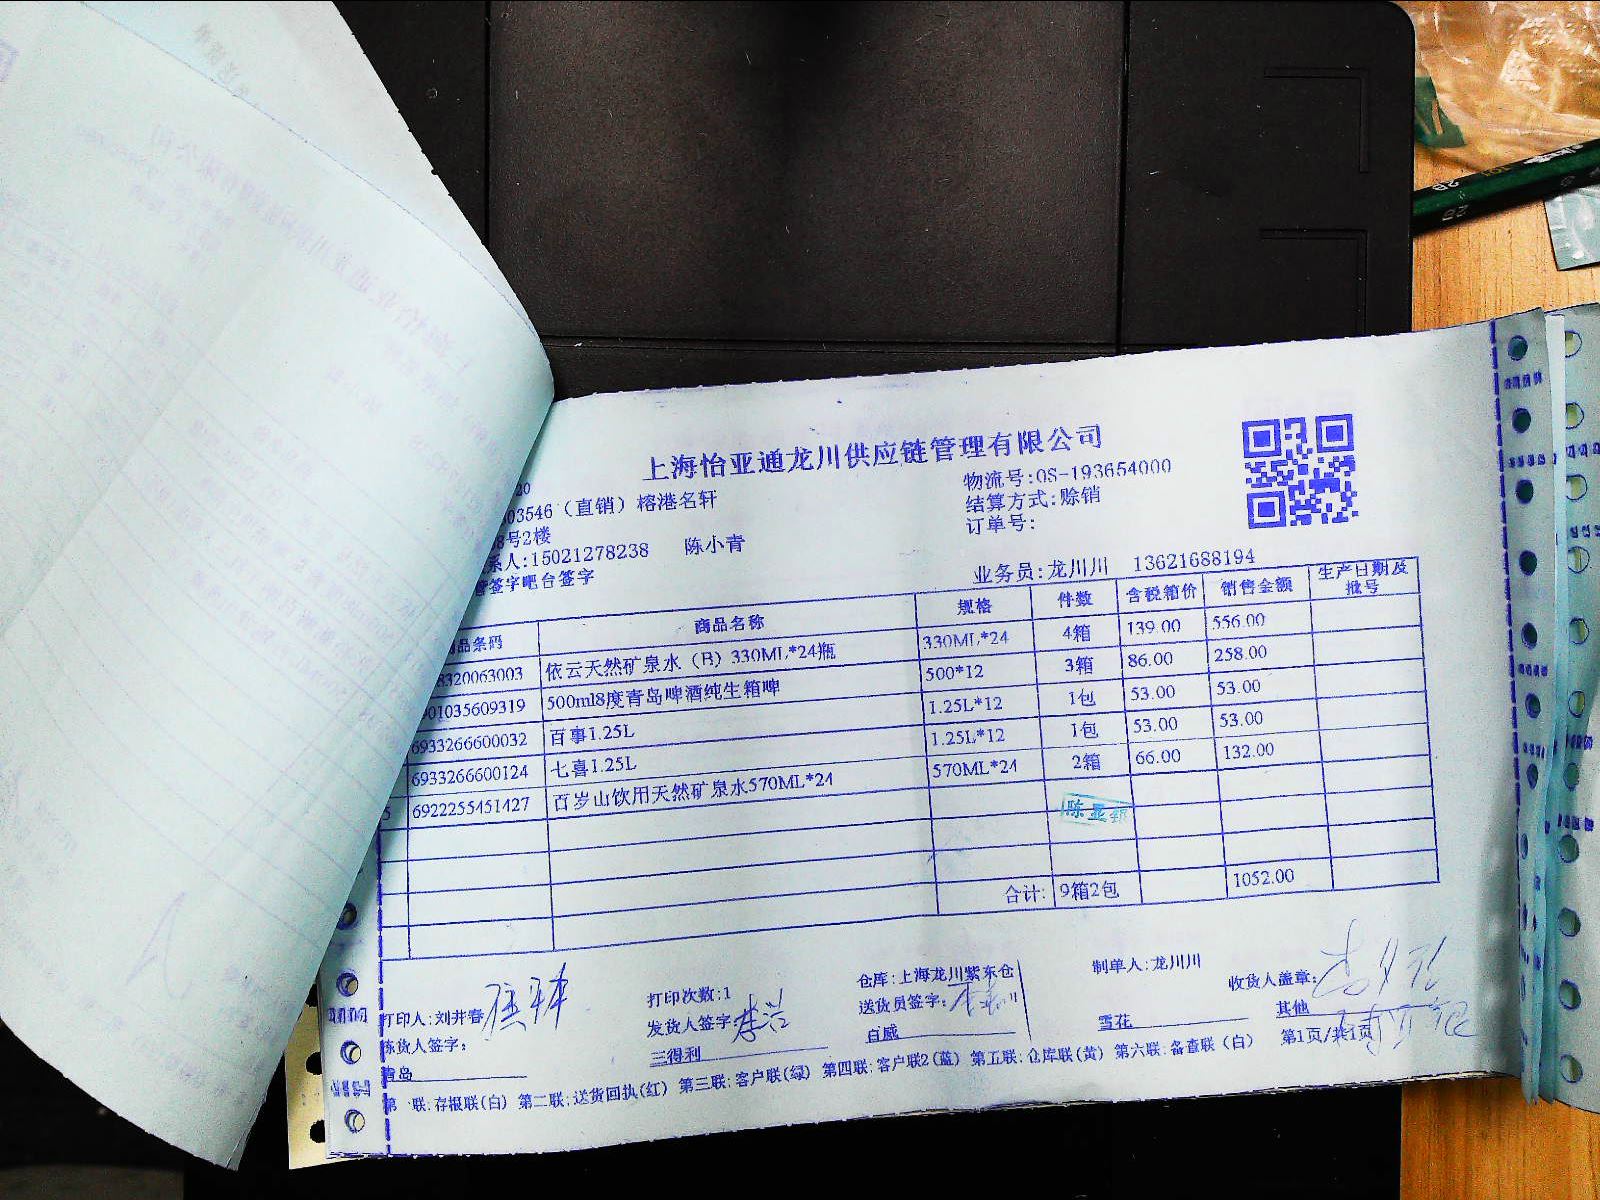 上海怡亚通龙川供应链管理有限公司
20
03546（直销）榕港名轩
物流号:OS-193654000
8号2楼
结算方式:赊销
系人:15021278238 陈小青
订单号:
签字吧台签字
业务员:龙川川 13621688194
品条码 商品名称 规格 件数 含税箱价 销售金额 生产日期及批号
8320063003 依云天然矿泉水（B）330ML*24瓶 330ML*24 4箱 139.00 556.00
901035609319 500ml8度青岛啤酒纯生箱啤 500*12 3箱 86.00 258.00
6933266600032 百事1.25L 1.25L*12 1包 53.00 53.00
6933266600124 七喜1.25L 1.25L*12 1包 53.00 53.00
5 6922255451427 百岁山饮用天然矿泉水570ML*24 570ML*24 2箱 66.00 132.00
合计: 9箱2包 1052.00
打印人:刘井春 打印次数:1 仓库:上海龙川紫东仓 制单人:龙川川 收货人盖章:
拣货人签字: 发货人签字: 李浩 送货员签字: 其他
青岛 三得利 百威 雪花 第1页/共1页
第一联:存报联(白) 第二联:送货回执(红) 第三联:客户联(绿) 第四联:客户联2(蓝) 第五联:仓库联(黄) 第六联:备查联（白）
2B